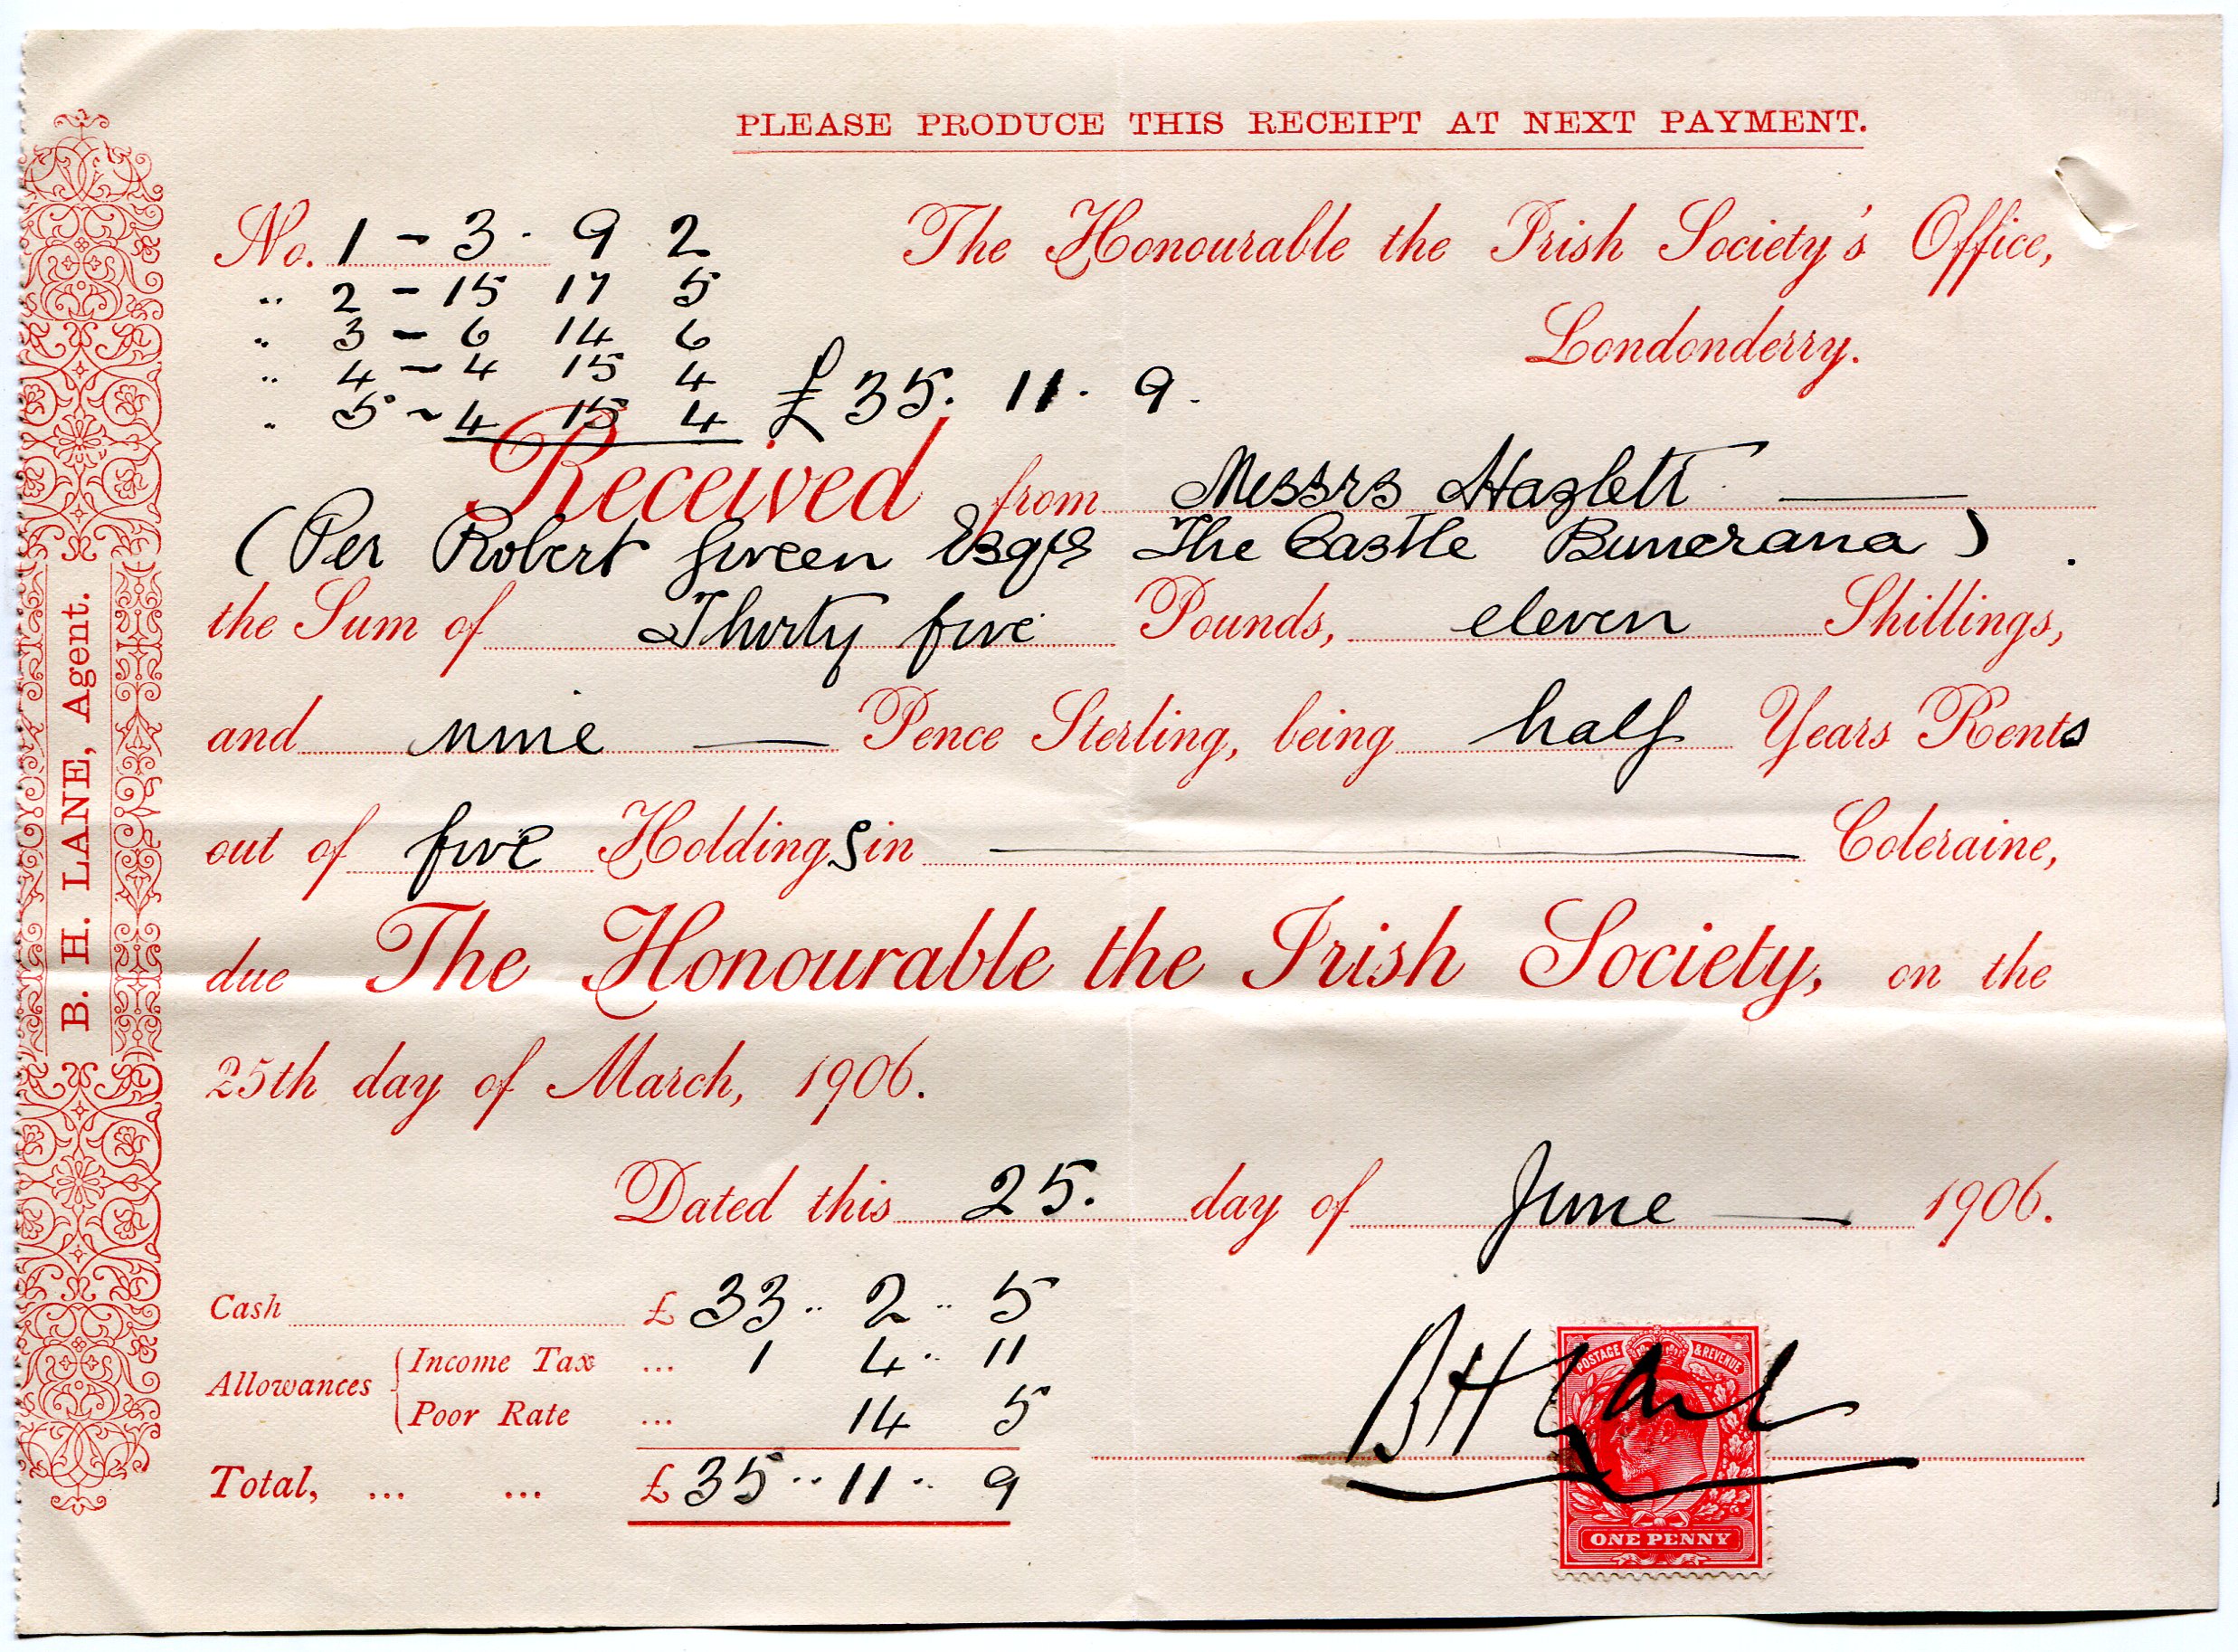 PLEASE PRODUCE THIS RECEIPT AT NEXT PAYMENT.
No. 1 - 3 . 9 2
" 2 - 15 17 5
" 3 - 6 14 6
" 4 - 4 15 4
" 5 - 4 15 4 £35. 11. 9.
The Honourable the Irish Society's Office,
Londonderry.
Received from Messrs Hazlett
(Per Robert Green Esqre The Castle Buncrana).
the Sum of Thirty five Pounds, eleven Shillings,
and nine Pence Sterling, being half Years Rents
out of five Holdings in Coleraine,
due The Honourable the Irish Society, on the
25th day of March, 1906.
Dated this 25. day of June 1906.
Cash £33 .. 2 .. 5
Allowances
Income Tax ... 1 4 .. 11
Poor Rate ... 14 5
Total, ... ... £35 .. 11 .. 9
B H Lane
POSTAGE & REVENUE
ONE PENNY
B. H. LANE, Agent.